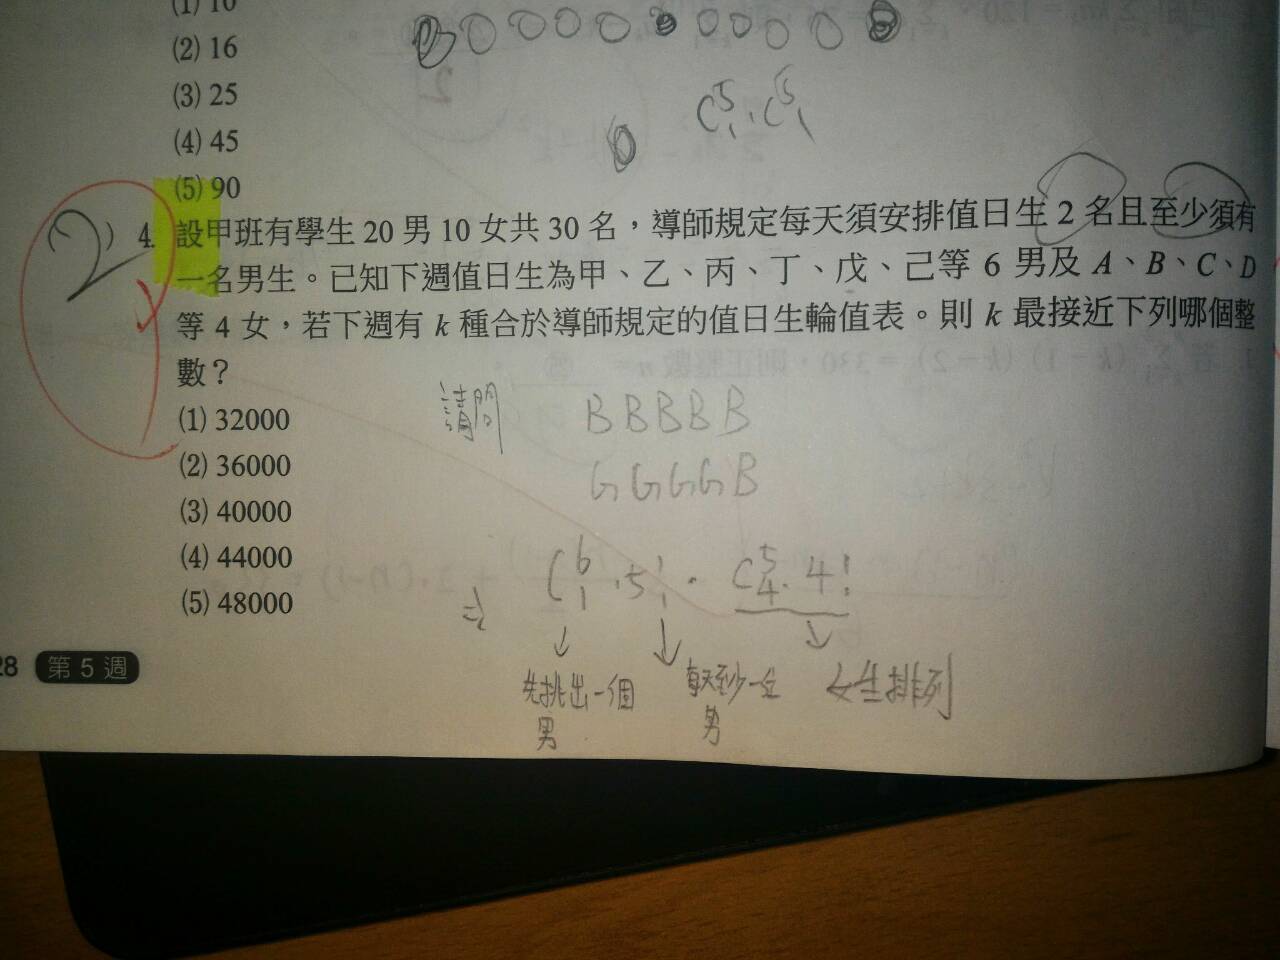 (1) 10
(2) 16
(3) 25
(4) 45
(5) 90
C⁵₁.C⁵₁
(2) 4. 設甲班有學生 20 男 10 女共 30 名，導師規定每天須安排值日生 2 名且至少須有
一名男生。已知下週值日生為甲、乙、丙、丁、戊、己等 6 男及 A、B、C、D
等 4 女，若下週有 k 種合於導師規定的值日生輪值表。則 k 最接近下列哪個整
數？
(1) 32000
(2) 36000
(3) 40000
(4) 44000
(5) 48000
請問
B B B B B
G G G G B
⇒ C⁶₁.5!.C⁵₄.4!
先挑出一個
男
每天至少一位
男
女生排列
28 第 5 週